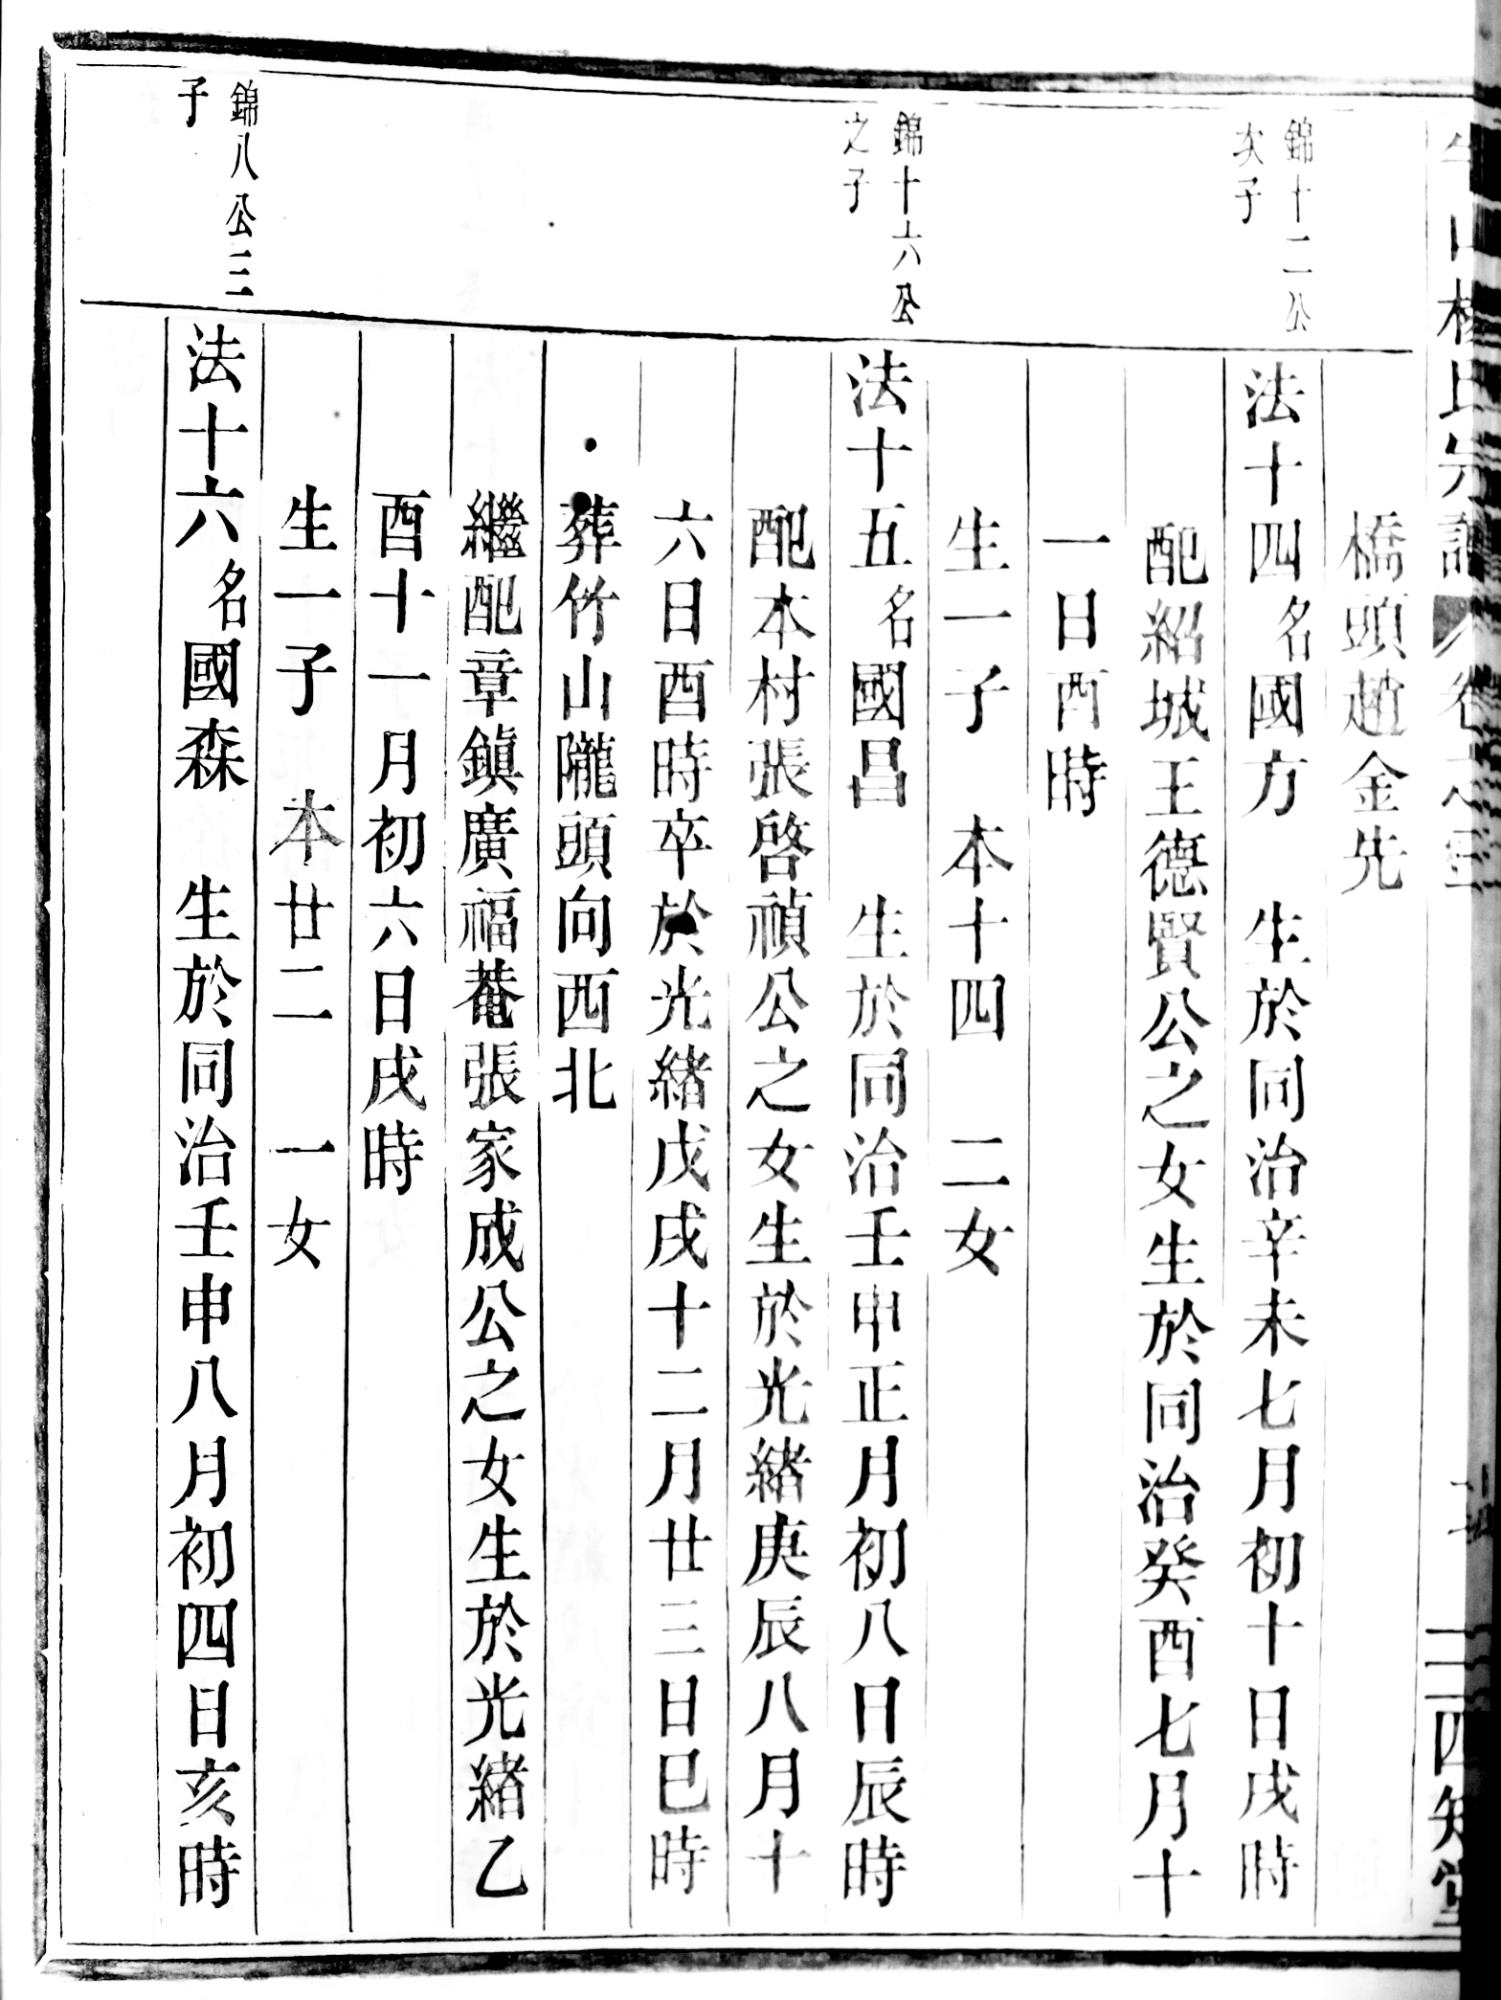 橋頭趙金先
錦十二公
次子
法十四名國方　生於同治辛未七月初十日戌時
配紹城王德賢公之女生於同治癸酉七月十
一日酉時
生一子　本十四　二女
錦十六公
之子
法十五名國昌　生於同治壬申正月初八日辰時
配本村張啓禎公之女生於光緒庚辰八月十
六日酉時卒於光緒戊戌十二月廿三日巳時
葬竹山隴頭向西北
繼配章鎮廣福菴張家成公之女生於光緒乙
酉十一月初六日戌時
生一子　本廿二　一女
錦八公三
子
法十六名國森　生於同治壬申八月初四日亥時
四知堂